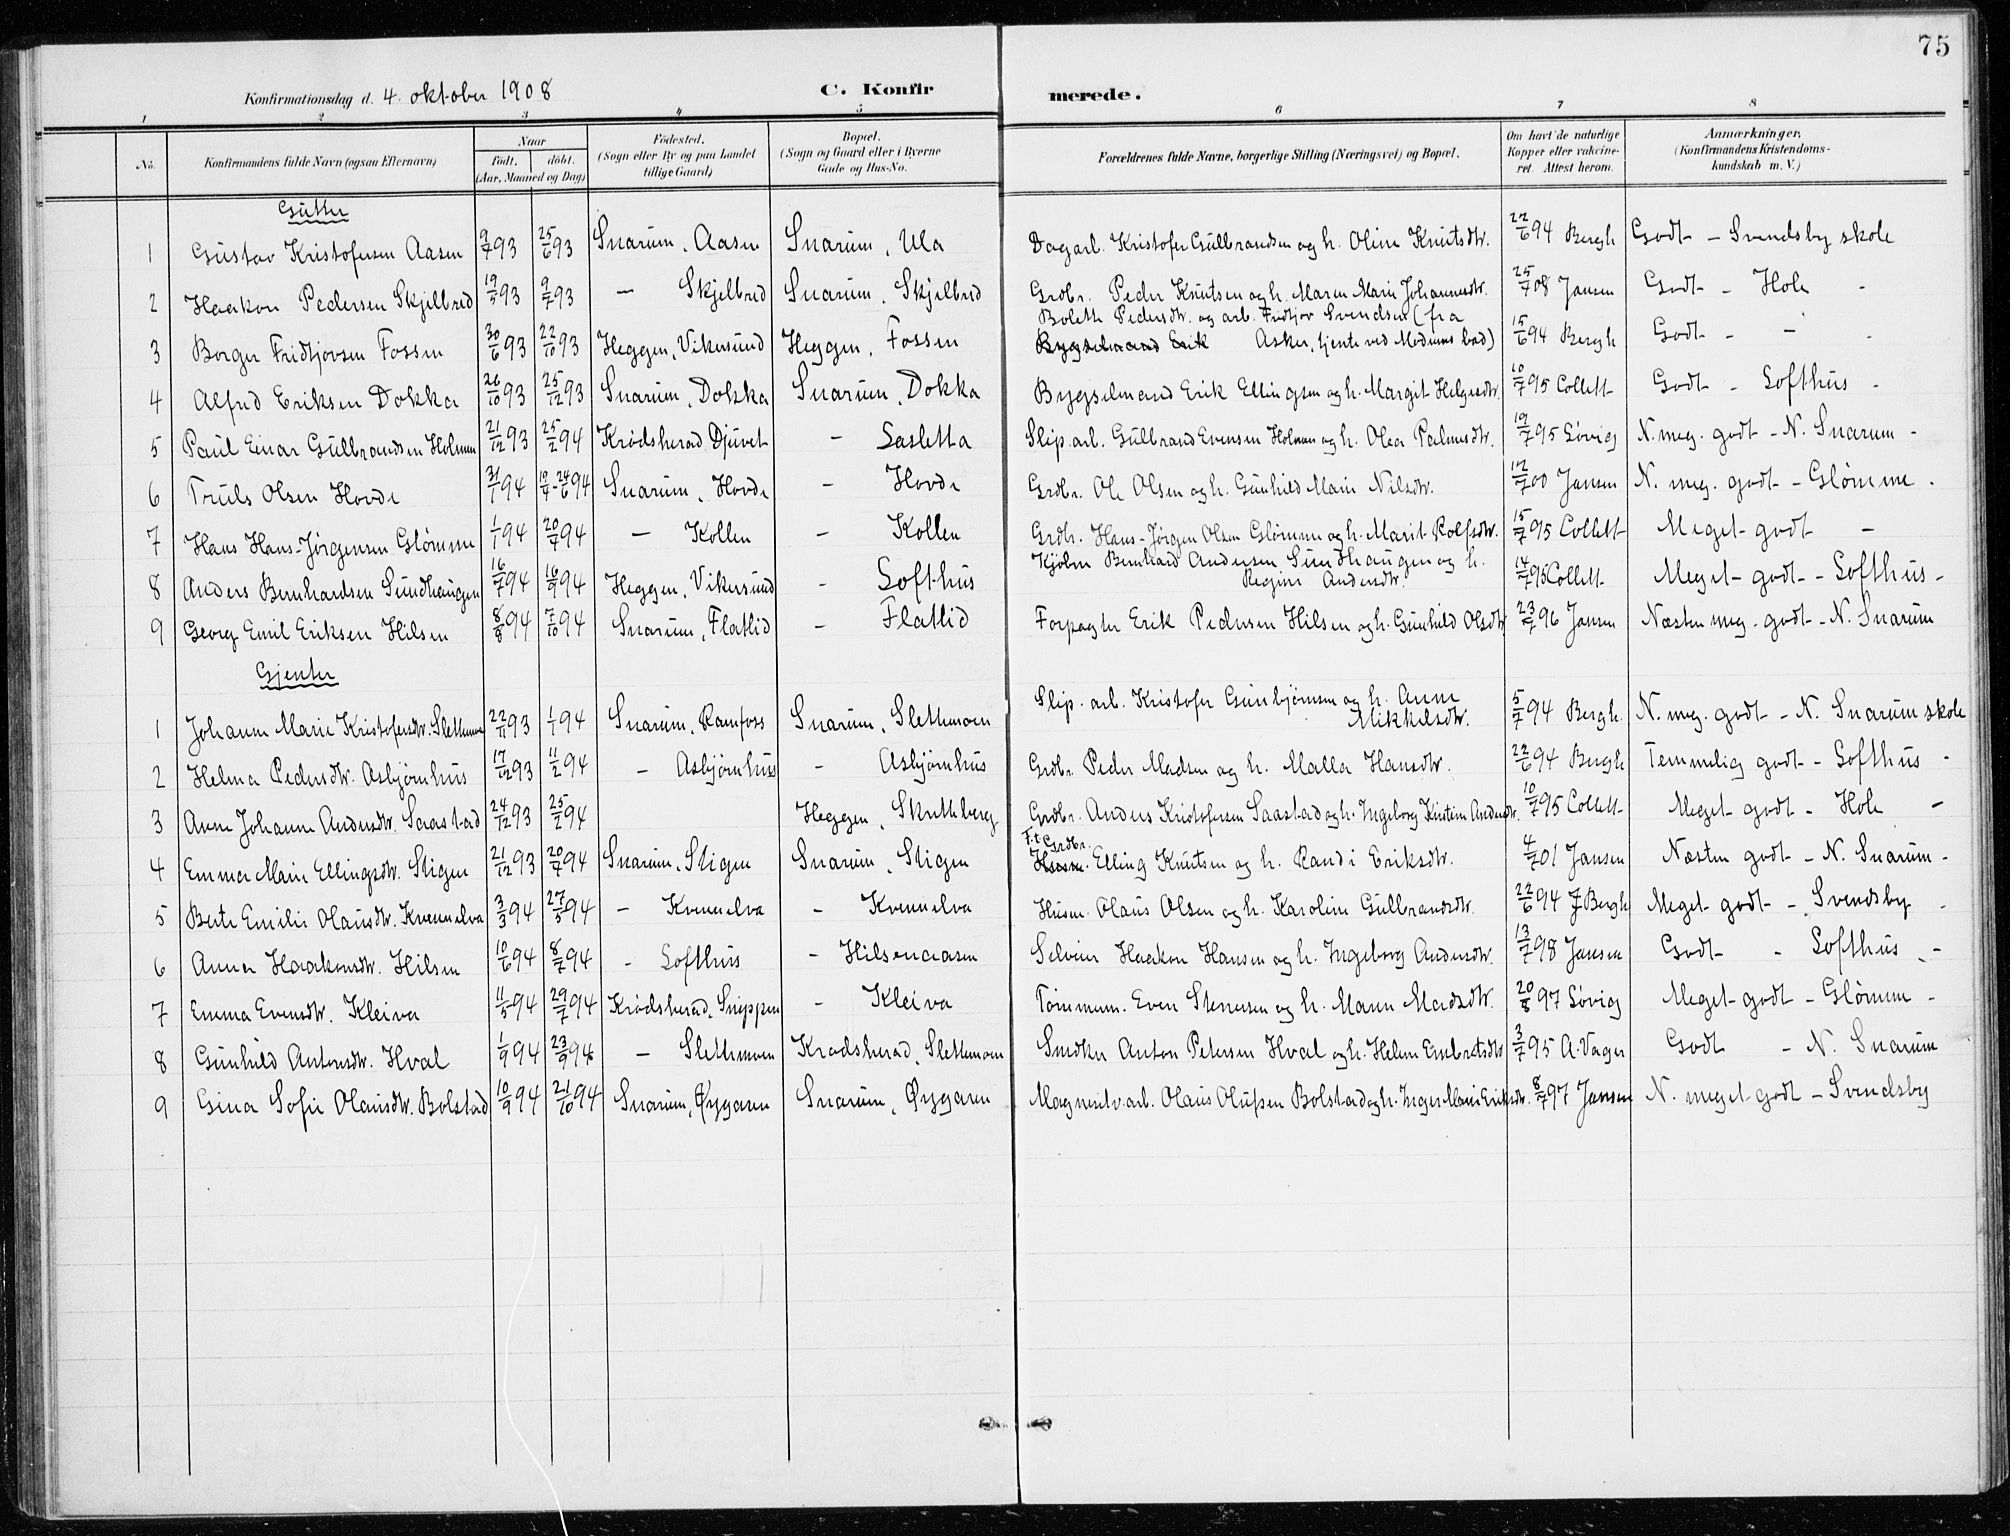 75
Konfirmationsdag d. 4. oktober 1908 C. Konfirmerede.
1 2 3 4 5 6 7 8
No. Konfirmandens fulde Navn (ogsaa Efternavn) Naar født. døbt. (Aar, Maaned og Dag) Fødested. (Sogn eller By og paa Landet tillige Gaard) Bopæl. (Sogn og Gaard eller i Byerne Gade og Hus-No. Forældrenes fulde Navne, borgerlige Stilling (Næringsvei) og Bopæl. Om havt de naturlige Kopper eller vaccineret. Attest herom. Anmærkninger. (Konfirmandens Kristendomskundskab m. V.)
Gutter
1 Gustav Kristofersen Aasen 9/4 93 25/6 93 Snarum, Aasen Snarum, Ula Dagarb. Kristofer Gulbrandsen og h. Oline Knutsdtr. 22/6 94 Bergh Godt - Svendsby skole
2 Haakon Pedersen Skjelbred 19/5 93 9/7 93 — Skjelbred Snarum, Skjelbred Grdbr. Peder Knutsen og h. Maren Marie Johannesdtr. 25/7 08 Jansen Godt - Hole -
3 Borger Fridtjovsen Fossen 30/6 93 22/10 93 Heggen, Vikersund Heggen, Fossen Bolette Pedersdtr. og arb. Fridtjov Svendsen (fra Bygselmand Erik Asker, tjente ved Modums bad) 15/6 94 Bergh Godt - - -
4 Alfred Eriksen Dokka 26/10 93 25/12 93 Snarum, Dokka Snarum, Dokka Bygselmand Erik Ellingsen og h. Margit Helgesdtr. 10/7 95 Collett Godt - Lofthus -
5 Paul Einar Gulbrandsen Holmen 21/12 93 25/2 94 Krødsherad, Djuvet - Lasletta Slip.arb. Gulbrand Evensen Holmen og h. Olea Palmesdtr. 19/7 95 Løvig N. meg. godt - N. Snarum -
6 Truls Olsen Hovde 31/1 94 10/4-24/6 94 Snarum, Hovde - Hovde Grdbr. Ole Olsen og h. Gunhild Marie Nilsdtr. 12/7 00 Jansen N. meg. godt - Glømme -
7 Hans Hans-Jørgensen Glømme 1/1 94 20/4 94 — Kollen - Kollen Grdbr. Hans-Jørgen Olsen Glømme og h. Marit Rolfsdtr. 15/7 95 Collett Meget godt -
8 Anders Bernhardsen Sundhaugen 16/7 94 16/9 94 Heggen, Vikersund - Lofthus Kjøbm. Bernhard Andersen Sundhaugen og h. Regine Andersdtr. 14/7 95 Collett Meget godt - Lofthus -
9 Georg Emil Eriksen Hilsen 8/8 94 7/10 94 Snarum, Flatlid - Flatlid Forpagter Erik Pedersen Hilsen og h. Gunhild Olsdtr. 23/7 96 Jansen Næsten meg. godt - N. Snarum
Gjenter
1 Johanne Marie Kristofersdtr. Slettemoen 22/11 93 1/1 94 Snarum, Ramfoss Snarum, Slettemoen Slip.arb. Kristofer Gunbjørnsen og h. Anne Mikkelsdtr. 5/7 94 Bergh. N. meg. godt - N. Snarum skole
2 Helma Pedersdtr. Asbjørnhus 17/12 93 11/2 94 - Asbjørnhus - Asbjørnhus Grdbr. Peder Madsen og h. Malla Hansdtr. 22/6 94 Bergh Temmelig godt - Lofthus -
3 Anne Johanne Andersdtr. Saastad 24/12 93 25/2 94 Heggen, Skretteberg Grdbr. Anders Kristofersen Saastad og h. Ingeborg Kirstine Andersdtr. 10/7 95 Collett Meget godt - Hole -
4 Emma Marie Ellingsdtr. Stigen 21/12 93 20/4 94 Snarum, Stigen Snarum, Stigen F.t. Grdbr. Husm. Elling Knutsen og h. Randi Eriksdtr. 4/7 01 Jansen Næsten godt - N. Snarum -
5 Berte Emilie Olausdtr. Kvennelva 3/3 94 27/5 94 - Kvennelva - Kvennelva Husm. Olaus Olsen og h. Karoline Gulbrandsdtr. 22/6 94 J Bergh Meget godt - Svendsby -
6 Anna Haakonsdtr. Hilsen 10/6 94 8/7 94 - Lofthus - Hilsenaasen Selveier Haakon Hansen og h. Ingeborg Andersdtr. 13/7 98 Jansen Godt - Lofthus -
7 Emma Evensdtr. Kleiva 11/5 94 29/7 94 Krødsherad, Snippen - Kleiva Tømmerm. Even Stenersen og h. Maren Madsdtr. 20/8 97 Løvig Meget godt - Glømme -
8 Gunhild Antonsdtr. Hval 1/9 94 23/9 94 - Slettemoen Krødsherad, Slettemoen Snedker Anton Petersen Hval og h. Helene Embretsdtr 3/7 95 A. Vager Godt - N. Snarum
9 Gina Sofie Olausdtr. Bolstad 10/9 94 21/10 94 Snarum, Øygaren Snarum, Øygaren Magnesitv.arb. Olaus Olufsen Bolstad og h. Inger Marie Eriksdtr. 8/7 97 Jansen N. meget godt - Svendsby